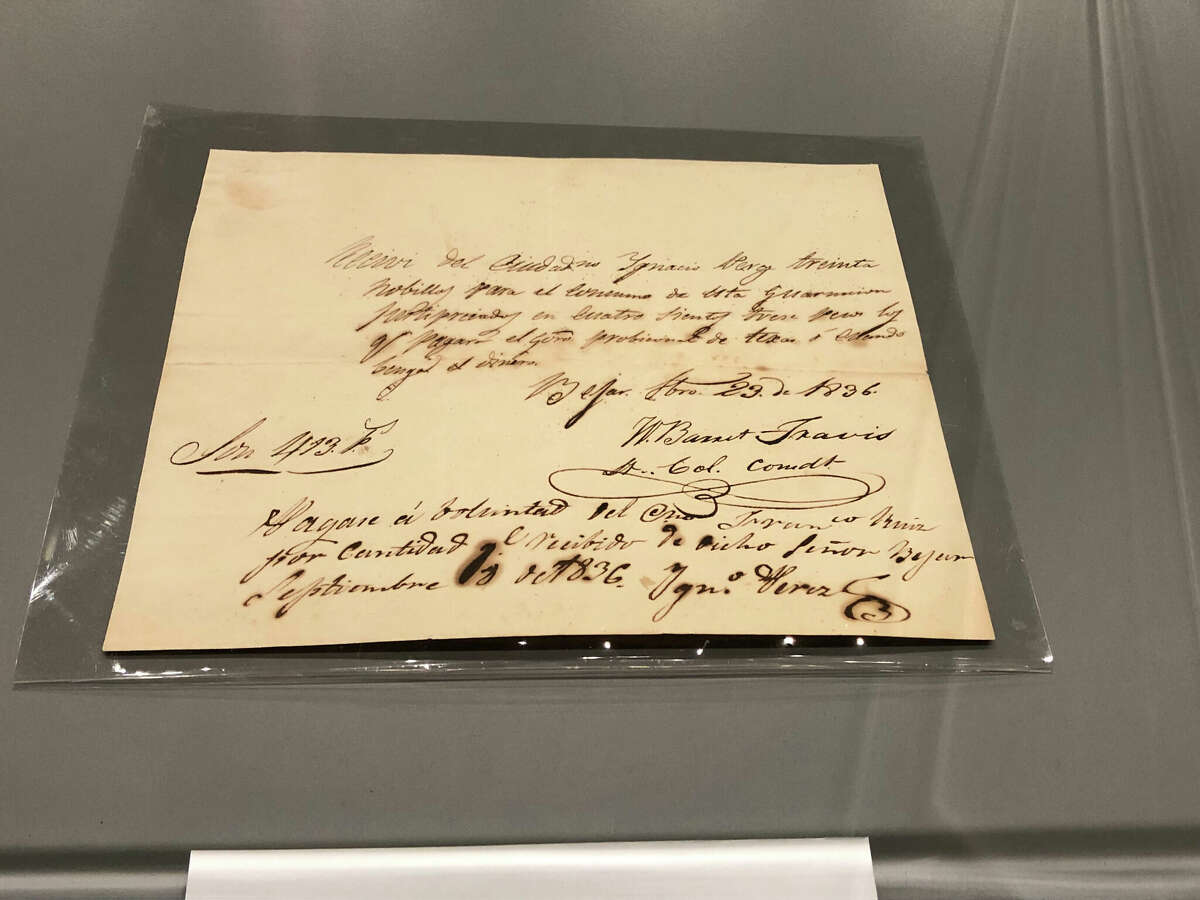 Recivi del Ciudadno Ygnacio Perez treinta
nobillos para el consumo de esta Guarnicion
en cuatro sientos trese pesos los
q̃ pagara el Govo. probicional de texas ó
tenga el dinero.
Bejar. Fbro. 23. de 1836.
W. Barret Travis
Lt. Col. Comdt.
Son 413. ps.
Pagase á voluntad del Cno. Franco. Ruiz
por Cantidad recibido de dicho Señor Bejar
Septiembre de 1836. Ygno. Perez